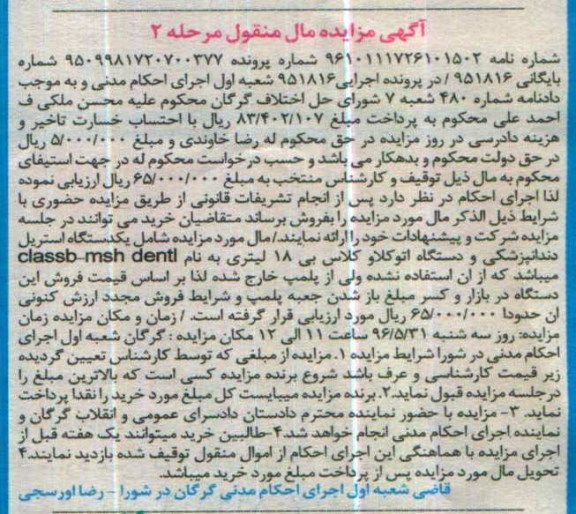 آگهی مزایده مال منقول مرحله ۲
شماره نامه ۹۶۱۰۱۱۱۷۲۶۱۰۱۵۰۲ شماره پرونده ۹۵۰۹۹۸۱۷۲۰۷۰۰۳۷۷ شماره
بایگانی ۹۵۱۸۱۶ / در پرونده اجرایی ۹۵۱۸۱۶ شعبه اول اجرای احکام مدنی و به موجب
دادنامه شماره ۴۸۰ شعبه ۷ شورای حل اختلاف گرگان محکوم علیه محسن ملکی ف
احمد علی محکوم به پرداخت مبلغ ۸۳/۴۰۲/۱۰۷ ریال با احتساب خسارت تاخیر و
هزینه دادرسی در روز مزایده در حق محکوم له رضا خاوندی و مبلغ ۵/۰۰۰/۰۰۰ ریال
در حق دولت محکوم و بدهکار می باشد و حسب درخواست محکوم له در جهت استیفای
محکوم به مال ذیل توقیف و کارشناس منتخب به مبلغ ۶۵/۰۰۰/۰۰۰ ریال ارزیابی نموده
لذا اجرای احکام در نظر دارد پس از انجام تشریفات قانونی از طریق مزایده حضوری با
شرایط ذیل الذکر مال مورد مزایده را بفروش برساند متقاضیان خرید می توانند در جلسه
مزایده شرکت و پیشنهادات خود را ارائه نمایند./مال مورد مزایده شامل یکدستگاه استریل
دندانپزشکی و دستگاه اتوکلاو کلاس بی ۱۸ لیتری به نام classb-msh dentl
میباشد که از ان استفاده نشده ولی از پلمپ خارج شده لذا بر اساس قیمت فروش این
دستگاه در بازار و کسر مبلغ باز شدن جعبه پلمپ و شرایط فروش مجدد ارزش کنونی
ان حدودا ۶۵/۰۰۰/۰۰۰ ریال مورد ارزیابی قرار گرفته است. / زمان و مکان مزایده زمان
مزایده: روز سه شنبه ۹۶/۵/۳۱ ساعت ۱۱ الی ۱۲ مکان مزایده : گرگان شعبه اول اجرای
احکام مدنی در شورا شرایط مزایده ۱.مزایده از مبلغی که توسط کارشناس تعیین گردیده
زیر قیمت کارشناسی و عرف باشد شروع برنده مزایده کسی است که بالاترین مبلغ را
در جلسه مزایده قبول نماید.۲. برنده مزایده میبایست کل مبلغ مورد خرید را نقدا پرداخت
نماید. ۳-مزایده با حضور نماینده محترم دادستان دادسرای عمومی و انقلاب گرگان و
نماینده اجرای احکام مدنی انجام خواهد شد.۴-طالبین خرید میتوانند یک هفته قبل از
اجرای مزایده با هماهنگی این اجرای احکام از اموال منقول توقیف شده بازدید نمایند.۴
تحویل مال مورد مزایده پس از پرداخت مبلغ مورد خرید میباشد.
قاضی شعبه اول اجرای احکام مدنی گرگان در شورا - رضا اورسجی